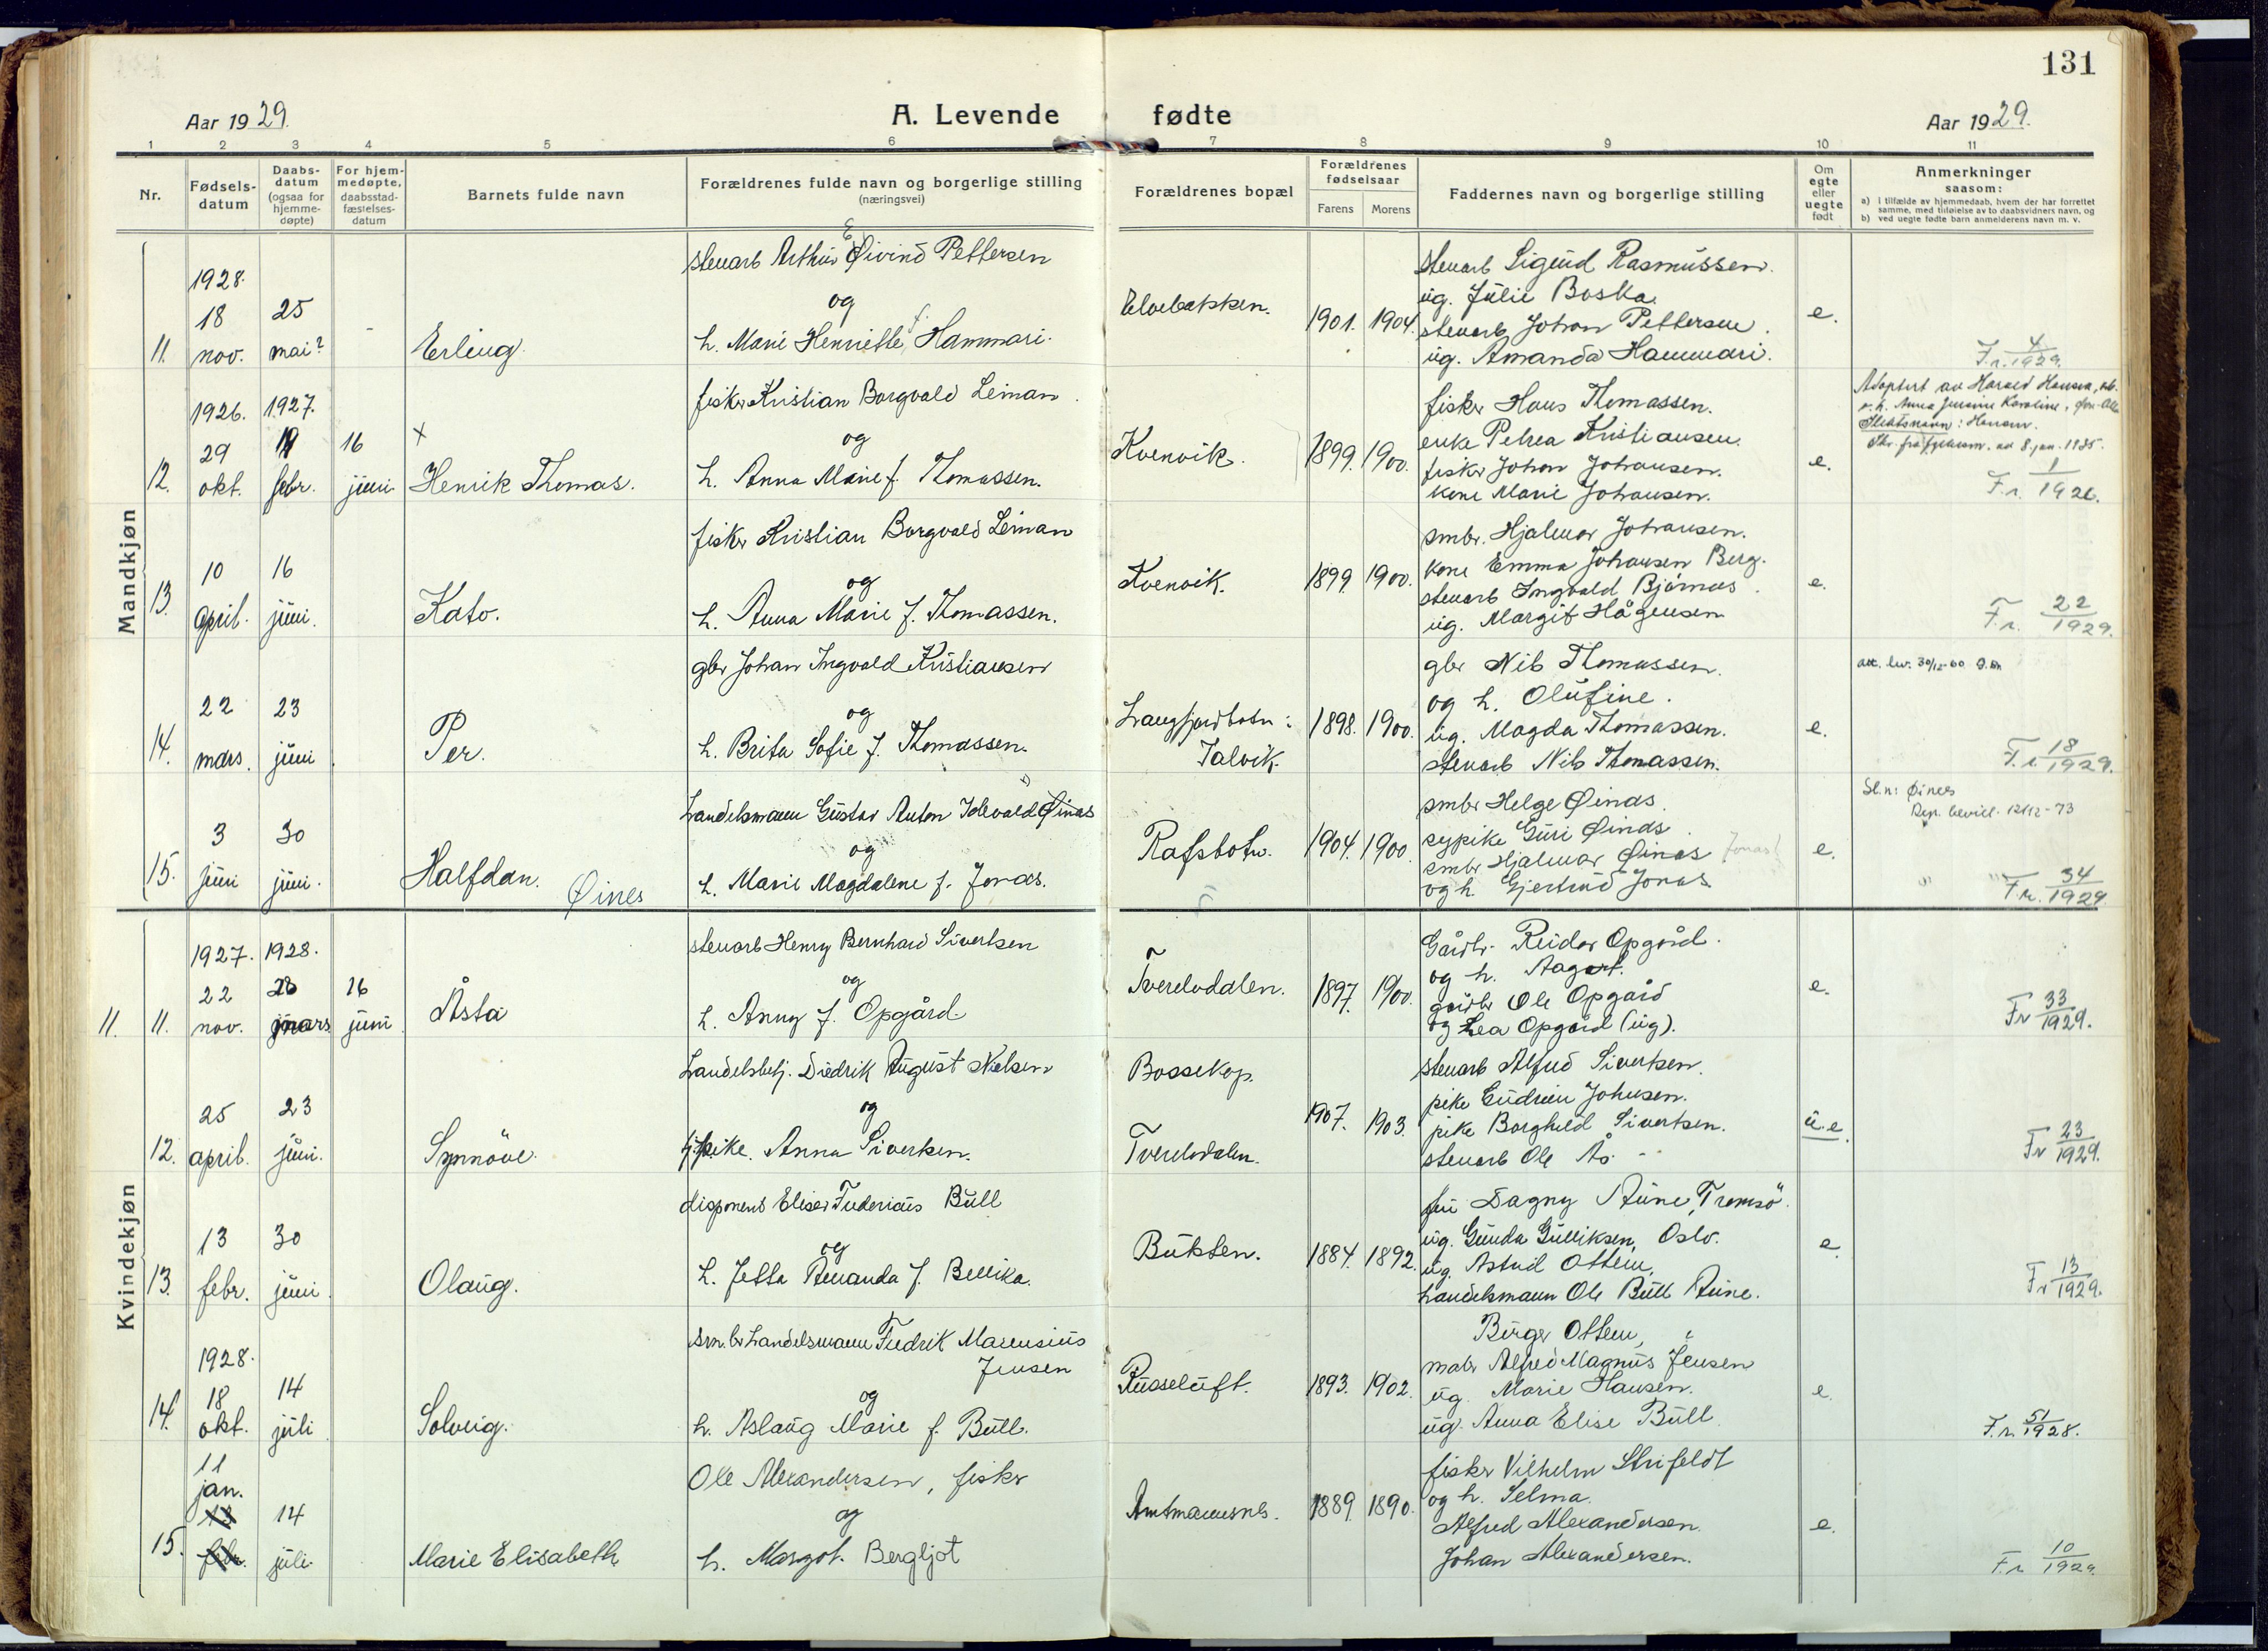 131
Aar 1929.
A. Levende fødte
Aar 1929.
1 2 3 4 5 6 7 8 9 10 11
Nr.
Fødselsdatum
Daabsdatum (ogsaa for hjemmedøpte)
For hjemmedøpte, daabsstadfæstelsesdatum
Barnets fulde navn
Forældrenes fulde navn og borgerlige stilling (næringsvei)
Forældrenes bopæl
Forældrenes fødselsaar
Farens Morens
Faddernes navn og borgerlige stilling
Om egte eller uegte født
Anmerkninger saasom:
a) i tilfælde av hjemmedaab, hvem der har forrettet samme, med tilføielse av to daabsvidners navn, og
b) ved uegte fødte barn anmelderens navn m. v.
Mandkjøn
11.
1928.
18 nov.
25 mai?
Erling.
stenarb Arthur Øivind Pettersen
og
h. Marie Henriette f. Hammari.
Elvebakken.
1901. 1904.
stenarb Sigurd Rasmussen.
ug. Julie Boska.
stenarb Johan Pettersen.
ug. Amanda Hammari.
e.
F.r. 4/1929.
12.
1926. 1927.
29 okt.
febr.
16 juni
x
Henrik Thomas.
fisker Kristian Borgvald Leiman
og
h. Anna Marie f. Thomassen.
Kvenvik.
1899. 1900.
fisker Hans Thomassen.
enke Petrea Kristiansen.
fisker Johan Johansen.
kone Marie Johansen.
e.
Adoptert av Harald Hansen,
Anna Karoline,
Slektsnavn: Hansen.
8. jan. 1935.
F.r. 1/1926.
13.
10 april.
16 juni.
Kato.
fisker Kristian Borgvald Leiman
og
h. Anna Marie f. Thomassen.
Kvenvik.
1899. 1900.
smbr. Hjalmar Johansen.
kone Emma Johansen Berg.
stenarb Ingvald Bjørnaas.
ug. Margit Hågensen
e.
F.r. 22/1929.
14.
22 mars.
23 juni
Per.
gbr Johan Ingvald Kristiansen
og
h. Brita Sofie f. Thomassen.
Langfjordbotn:
Talvik.
1898. 1900.
gbr Nils Thomassen.
og h. Olufine.
ug. Magda Thomassen.
stenarb Nils Thomassen.
e.
att. lev. 30/12-60
F.r. 18/1929.
15.
3 juni
30 juni.
Halfdan. Øines
handelsmann Gustav Anton Øinas
og
h. Marie Magdalene f. Jonas.
Rafsbotn.
1904. 1900.
smbr Helge Øinas.
sypike Guri Øinas.
smbr Hjalmar Øinas Jonas!
og h. Gjertrud Jonas
e.
Sl.n: Øines
Dep. bevill. 12/12-73
F.r. 34/1929
Kvindekjøn
11. 11.
1927. 1928.
22 nov.
28 mars
16 juni
Åsta
stenarb Henry Bernhard Sivertsen
og
h. Anny f. Opgård.
Tverelvdalen.
1897. 1900.
Gårdbr. Reidar Opgård.
og h. Aagot.
gårdbr Ole Opgård
og Lea Opgård (ug).
e.
Fr 33/1929.
12.
25 april.
23 juni.
Synnöve.
handelsbetj. Diedrik August Nielsen
og
pike. Anna Sivertsen.
Bossekop.
Tverelvdalen.
1907. 1903.
stenarb Alfred Sivertsen.
pike Gudrun Johnsen.
pike Borghild Sivertsen.
stenarb Ole Ås.
u.e.
Fr 23/1929.
13.
13 febr.
30 juni.
Olaug.
disponent Eliser Fudericus Bull
og
h. Jetta Amanda f. Bellika.
Bukten.
1884. 1892.
fru Dagny Aune, Tromsö.
ug. Gunda Gulliksen, Oslo.
ug. Astrid Ottem,
handelsmann Ole Bull Aune.
Birger Ottem,
e.
Fr 13/1929.
14.
1928.
18 okt.
14 juli
Solveig.
sm.br handelsmann Fredrik Marensius Jensen
og
h. Aslaug Marie f. Bull.
Russeluft.
1893. 1902.
Alfred Magnus Jensen
ug. Marie Hansen.
ug. Anna Elise Bull.
e.
F.r. 51/1928.
15.
11 jan.
14 juli.
Marie Elisabeth
Ole Alexandersen, fisker
og
h. Margot. Bergljot
Amtmannsnes.
1889. 1890.
fisker Vilhelm Strifeldt
og h. Selma.
Alfred Alexandersen.
Johan Alexandersen.
e.
F.r. 10/1929.